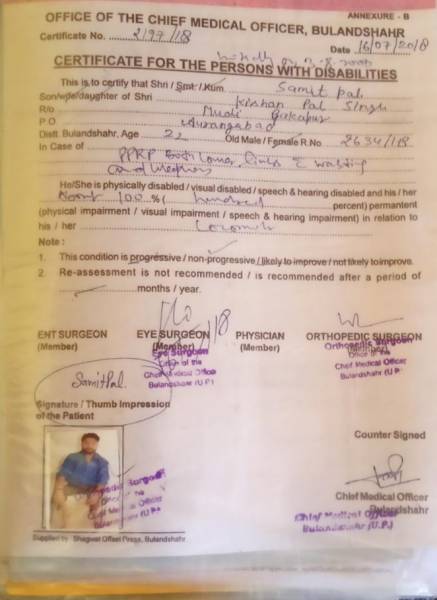 ANNEXURE - B
OFFICE OF THE CHIEF MEDICAL OFFICER, BULANDSHAHR
Certificate No. 2197/18
Date 16/07/2018
CERTIFICATE FOR THE PERSONS WITH DISABILITIES
This is to certify that Shri / Smt / Kum Samit pal
Son/wife/daughter of Shri Kishan Pal Singh
R/o
P.O Aurangabad
Distt. Bulandshahr, Age 22 Old Male / Female R.No 2634/118
In Case of PPRP Both Lower Limbs
He/She is physically disabled / visual disabled / speech & hearing disabled and his / her
100 % ( hundred percent) permantent
(physical impairment / visual impairment / speech & hearing impairment) in relation to
his / her
Note :
1. This condition is progressive / non-progressive / likely to improve / not likely to improve.
2. Re-assessment is not recommended / is recommended after a period of
months / year.
ENT SURGEON EYE SURGEON PHYSICIAN ORTHOPEDIC SURGEON
(Member) (Member) (Member)
Eye Surgeon
Office of the
Chief Medical Office
Bulandshahr (U.P.)
Orthopedic Surgeon
Office of the
Chief Medical Officer
Bulandshahr (U.P.)
Samit Pal.
Signature / Thumb Impression
of the Patient
Counter Signed
Orthopedic Surgeon
Office of the
Chief Medical Officer
Bulandshahr (U.P.)
Chief Medical Officer
Bulandshahr
Chief Medical Officer
Bulandshahr (U.P.)
Supplied by : Bhagwat Offset Press, Bulandshahr